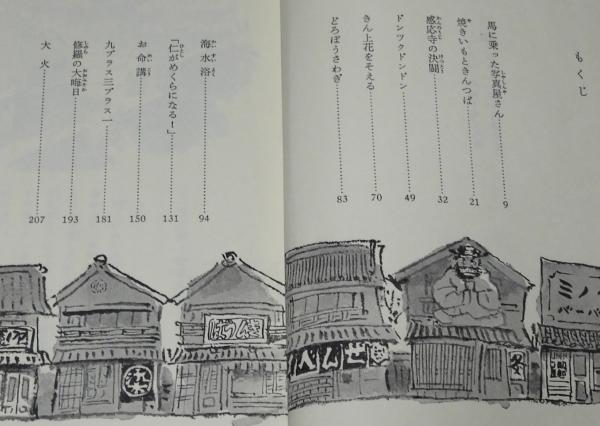 もくじ
馬に乗った写真屋さん 9
焼きいもときんつば 21
感応寺の決闘 32
ドンツクドンドン 49
きん上花をそえる 70
どろぼうさわぎ 83
海水浴 94
「仁がめくらになる!」 131
お命講 150
九プラス三プラス一 181
修羅の大晦日 193
大火 207
ミノ
バーバ